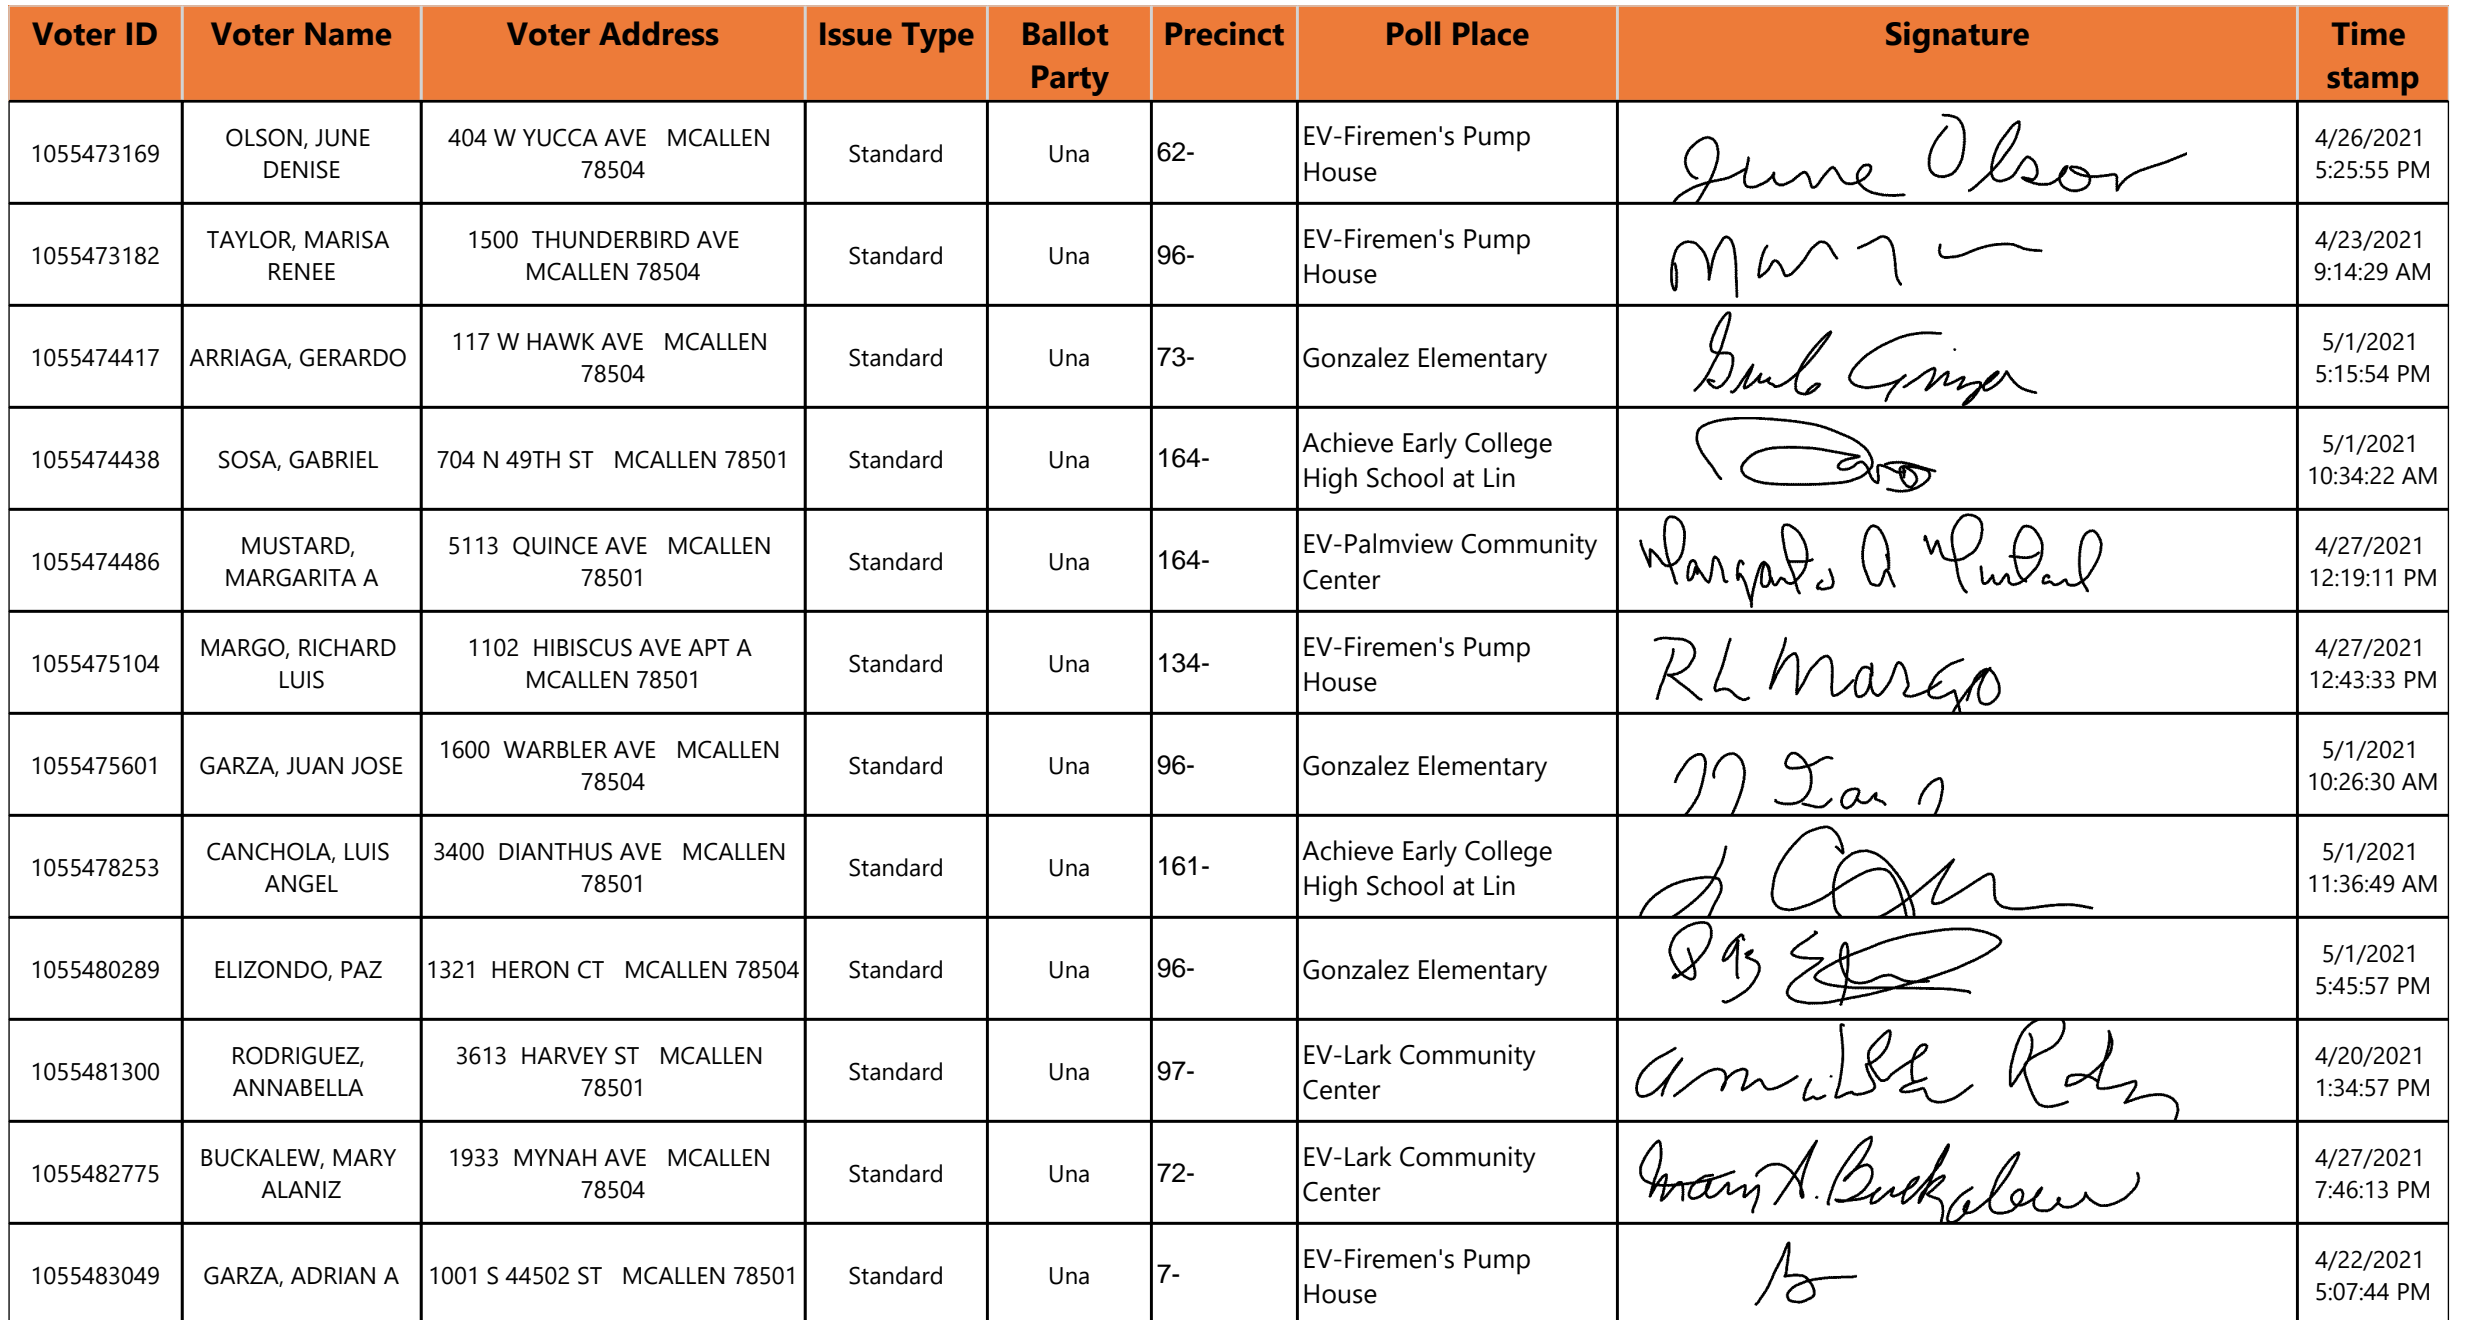 Voter ID Voter Name Voter Address Issue Type Ballot Party Precinct Poll Place Signature Time stamp
1055473169 OLSON, JUNE DENISE 404 W YUCCA AVE MCALLEN 78504 Standard Una 62- EV-Firemen's Pump House June Olson 4/26/2021 5:25:55 PM
1055473182 TAYLOR, MARISA RENEE 1500 THUNDERBIRD AVE MCALLEN 78504 Standard Una 96- EV-Firemen's Pump House 4/23/2021 9:14:29 AM
1055474417 ARRIAGA, GERARDO 117 W HAWK AVE MCALLEN 78504 Standard Una 73- Gonzalez Elementary 5/1/2021 5:15:54 PM
1055474438 SOSA, GABRIEL 704 N 49TH ST MCALLEN 78501 Standard Una 164- Achieve Early College High School at Lin 5/1/2021 10:34:22 AM
1055474486 MUSTARD, MARGARITA A 5113 QUINCE AVE MCALLEN 78501 Standard Una 164- EV-Palmview Community Center Margarita A Mustard 4/27/2021 12:19:11 PM
1055475104 MARGO, RICHARD LUIS 1102 HIBISCUS AVE APT A MCALLEN 78501 Standard Una 134- EV-Firemen's Pump House RL Margo 4/27/2021 12:43:33 PM
1055475601 GARZA, JUAN JOSE 1600 WARBLER AVE MCALLEN 78504 Standard Una 96- Gonzalez Elementary 5/1/2021 10:26:30 AM
1055478253 CANCHOLA, LUIS ANGEL 3400 DIANTHUS AVE MCALLEN 78501 Standard Una 161- Achieve Early College High School at Lin 5/1/2021 11:36:49 AM
1055480289 ELIZONDO, PAZ 1321 HERON CT MCALLEN 78504 Standard Una 96- Gonzalez Elementary Paz 5/1/2021 5:45:57 PM
1055481300 RODRIGUEZ, ANNABELLA 3613 HARVEY ST MCALLEN 78501 Standard Una 97- EV-Lark Community Center 4/20/2021 1:34:57 PM
1055482775 BUCKALEW, MARY ALANIZ 1933 MYNAH AVE MCALLEN 78504 Standard Una 72- EV-Lark Community Center Mary A. Buckalew 4/27/2021 7:46:13 PM
1055483049 GARZA, ADRIAN A 1001 S 44502 ST MCALLEN 78501 Standard Una 7- EV-Firemen's Pump House 4/22/2021 5:07:44 PM